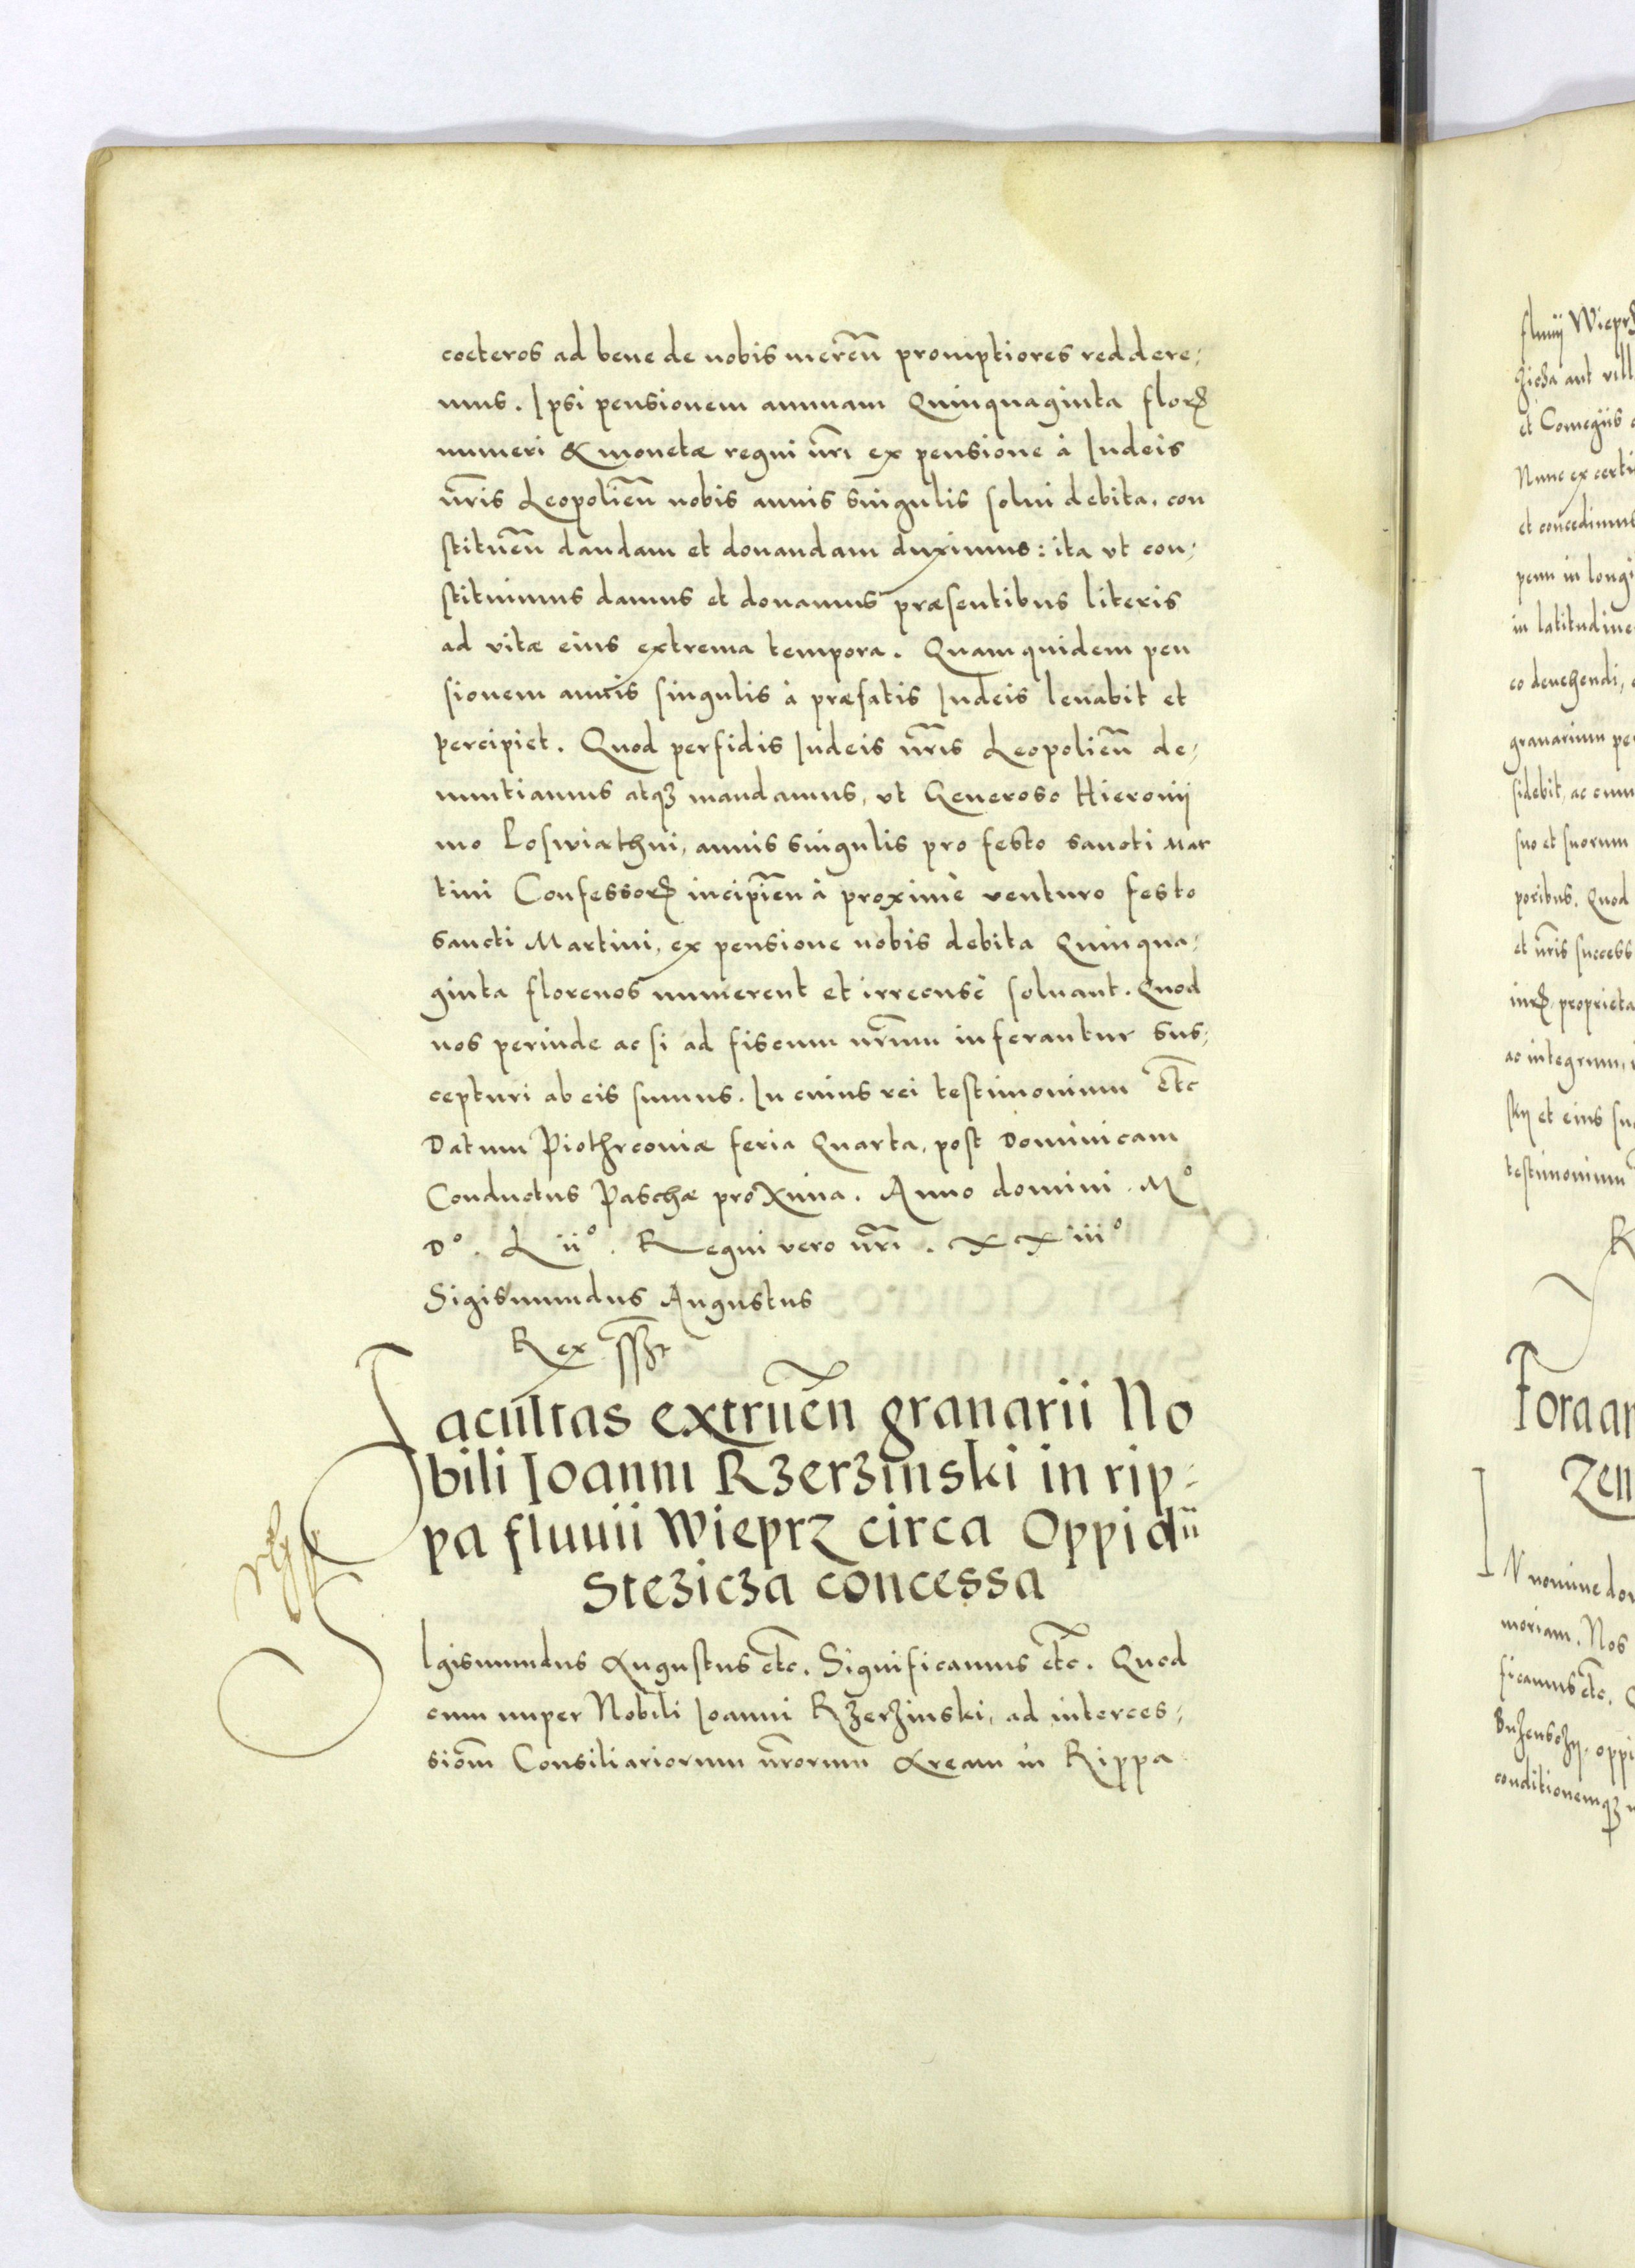 coeteros ad bene de nobis mereñ promptiores reddere⸗
mus. Ipsi pensionem annuam Quinquaginta floꝝ
numeri & monetæ regni nr̃i ex pensione à Iudeis
nr̃is Leopolieñ nobis annis singulis solui debita. con
stitueñ dandam et donandam duximus: ita vt con⸗
stituimus damus et donamus præsentibus literis
ad vitæ eius extrema tempora. Quam quidem pen
sionem annis singulis à præfatis Iudeis leuabit et
percipiet. Quod perfidis Iudeis nr̃is Leopolieñ de⸗
nuntiamus atqȝ mandamus, vt Generoso Hieronÿ
mo Loswiathni, annis singulis pro festo sancti Mar
tini Confessoꝝ incipieñ à proximè venturo festo
sancti Martini, ex pensione nobis debita Quinqua⸗
ginta florenos numerent et irrecusè soluant. Quod
nos perinde ac si ad fiscum nr̃um inferantur sus⸗
cepturi ab eis sumus. In cuius rei testimonium etc̃
Datum Piothrcouiæ feria Quarta, post Dominicam
Conductus Paschæ proxima. Anno domini. Mº
Dº. Liiº. Regni vero nr̃i. XXiiiº
Sigismundus Augustus
Rex
Facultas extrueñ granarii No
bili Ioanni Rzerzinski in rip⸗
pa fluuii Wieprz circa Oppidũ
Stezicza concessa
SIgismundus Augustus etc̃. Significamus etc̃. Quod
cum nuper Nobili Ioanni Rzerzinski, ad interces⸗
siom̃ Consiliariorum nr̃orum Aream in Rippa
fluuÿ
aut
et
Nunc ex
et concedimus
in longi
in latitudine
eo deuehendi,
granarium
sidebit, ac
suo et suorum
poribus. Quod
et nr̃is
iuꝝ, proprieta
ac integrum,
et eius
testimonium
Fora an
zen
IN nomine
moriam. Nos
ficamus etc̃.
oppi
conditionemqȝ